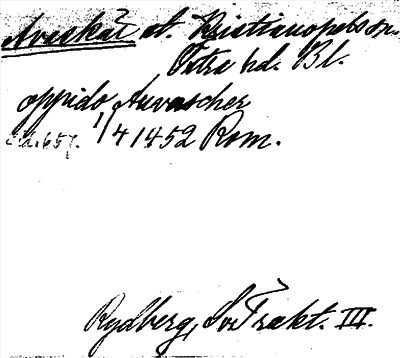 Avaskär st. Kristianopels sn.
Östra hd. Bl.
oppido Auvascher
1/4 1452 Rom.
Rydberg, Sv. Trakt. III.